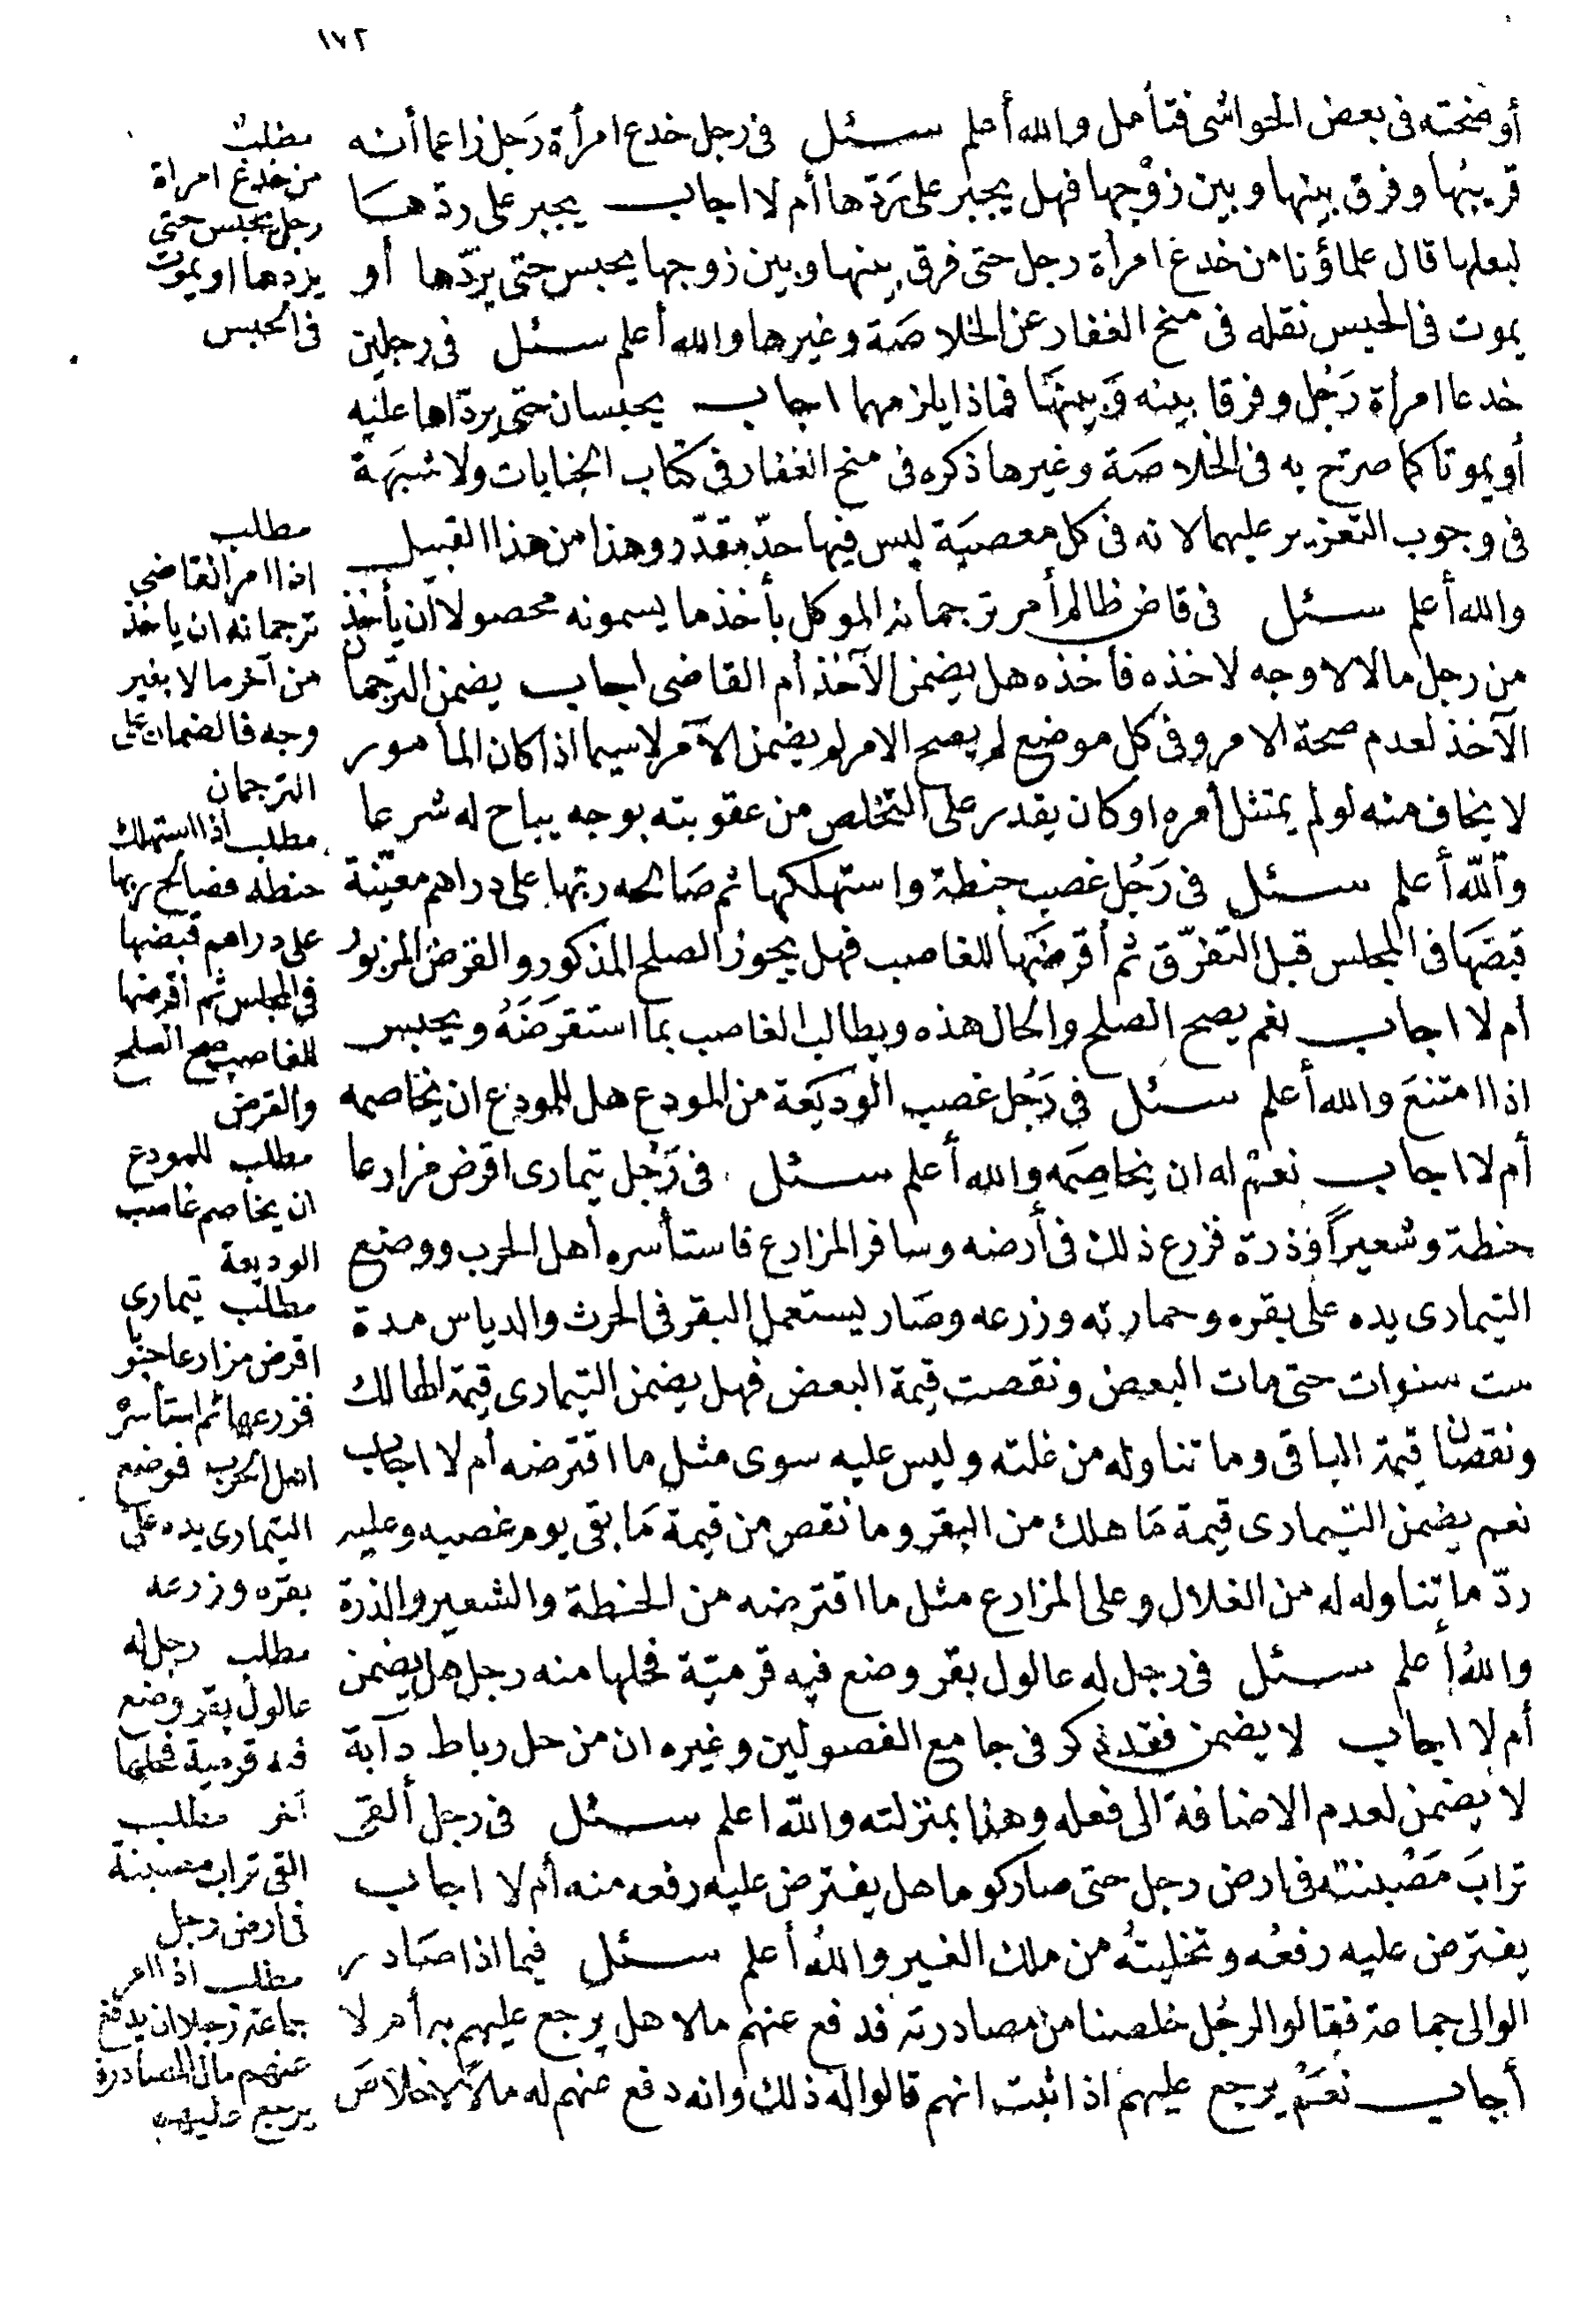 ١٧٢
أوضحته فى بعض الحواشى فتأمل والله أعلم سئل فى رجل خدع امرأة رَجل زاعما أنه
قريبُها وفرق بينها وبين زوْجها فهل يجبر على رَدّها أم لا اجاب يجبر على ردّها
لبعلها قال علماؤنا من خدع امرأة رجل حتى فرق بينها وبين زوجها يحبس حتى يردّها أو
يموت فى الحبس نقله فى منح الغفار عن الخلاصَة وغيرها والله أعلم سئل فى رجلين
خدعا امرأة رَجُل وفرقا بينه وَبينهَا فماذا يلزمهما اجاب يحبسان حتى يردّاها عليْه
أو يموتا كما صرّح به فى الخلاصَة وغيرها ذكره فى منح الغفار فى كتاب الجنايات ولا شبَهة
فى وجوب التعزير عليهما لانه فى كل معصيَة ليس فيها حدّ مقدّر وهذا من هذا القبيل
والله أعلم سئل فى قاض ظالم أمر ترجمانه الموكل بأخذ ما يسمونه محصولا أن يأخذ
من رجل مالا لا وجه لاخذه فأخذه هل يضمن الآخذ أم القاضى اجاب يضمن الترجمان
الآخذ لعدم صحة الامر وفى كل موضع لم يصح الامر لم يضمن الآمر لا سيما اذا كان المأمور
لا يخاف منه لو لم يمتثل أمره او كان يقدر على التخلص من عقوبته بوجه يباح له شرعا
والله أعلم سئل فى رَجُل غصب حنطة واستهلكها ثم صَالحه ربّها على دراهم معيّنة
قبضَها فى المجلس قبل التفرّق ثم أقرضَهَا للغاصب فهل يجوز الصلح المذكور والقرض المزبور
أم لا اجاب نعم يصح الصلح والحال هذه ويطالب الغاصب بما استقرَضَهُ ويحبس
اذا امتنعَ والله أعلم سئل فى رَجُل غصب الوديَعة من المودع هل للمودع ان يخاصمه
أم لا اجاب نعمْ له ان يخاصِمَه والله أعلم سئل فى رَجُل تيمارى اقرض مزارعا
حنطة وشعيراً وذرة فزرع ذلك فى أرضه وسافر المزارع فاستأسره أهل الحرب ووضع
التيمارى يده على بقره وحمارته وزرعه وصَار يستعمل البقر فى الحرث والدياس مدة
ست سنوات حتى مات البعض ونقصت قيمة البعض فهل يضمن التيمارى قيمة الهالك
ونقصان قيمة الباقى وما تناوله من غلته وليس عليه سوى مثل ما اقترضه أم لا اجاب
نعم يضمن التيمارى قيمة مَا هلك من البقر وما نقص من قيمة مَا بقى يوم غصبه وعليه
ردّ ما تناوله له من الغلال وعلى المزارع مثل ما اقترضه من الحنطة والشعير والذرة
واللهُ أعلم سئل فى رجل له عالول بقر وضع فيه قرميّة فحلها منه رجل هل يضمن
أم لا اجاب لا يضمن فقد ذكر فى جامع الفصولين وغيره ان من حل رباط دآبة
لا يضمن لعدم الاضافة الى فعله وهذا بمنزلته والله اعلم سئل فى رجل ألقى
ترابَ مَصْبنته فى ارض رجل حتى صار كوما هل يفترض عليه رفعه منه أم لا اجاب
يفترض عليه رفعُه وتخليتُه من ملك الغير واللهُ أعلم سئل فيما اذا صَادر
الوالى جماعة فقالوا لرجُل خلصنا من مصادرته فدفع عنهمْ مالا هل يرجع عليهم به أم لا
أجاب نعَمْ يرجع عليهمْ اذا ثبت انهم قالوا له ذلك وانه دفع عنهم له مالاً لاخلاصَ
مطلب
من خدع امراة
رجل يحبس حتى
يردها او يموت
فى الحبس
مطلب
اذا امر القاضى
ترجمانه ان ياخذ
من آخر مالا بغير
وجه فالضمان على
الترجمان
مطلب اذا استهلك
حنطة فصالح ربها
على دراهم قبضها
فى المجلس ثم أقرضها
للغاصب صح الصلح
والقرض
مطلب للمودع
ان يخاصم غاصب
الوديعة
مطلب تيمارى
اقرض مزارعا حبّا
فزرعها ثم استأسره
اهل الحرب فوضع
التيمارى يده على
بقره وزرعه
مطلب رجل له
عالول بقر وضع
فيه قرمية فحلها
آخر مطلب
القى تراب مصبنة
فى ارض رجل
مطلب اذا امر
جماعة رجلا ان يدفع
عنهم مال المصادرة
يرجع عليهم